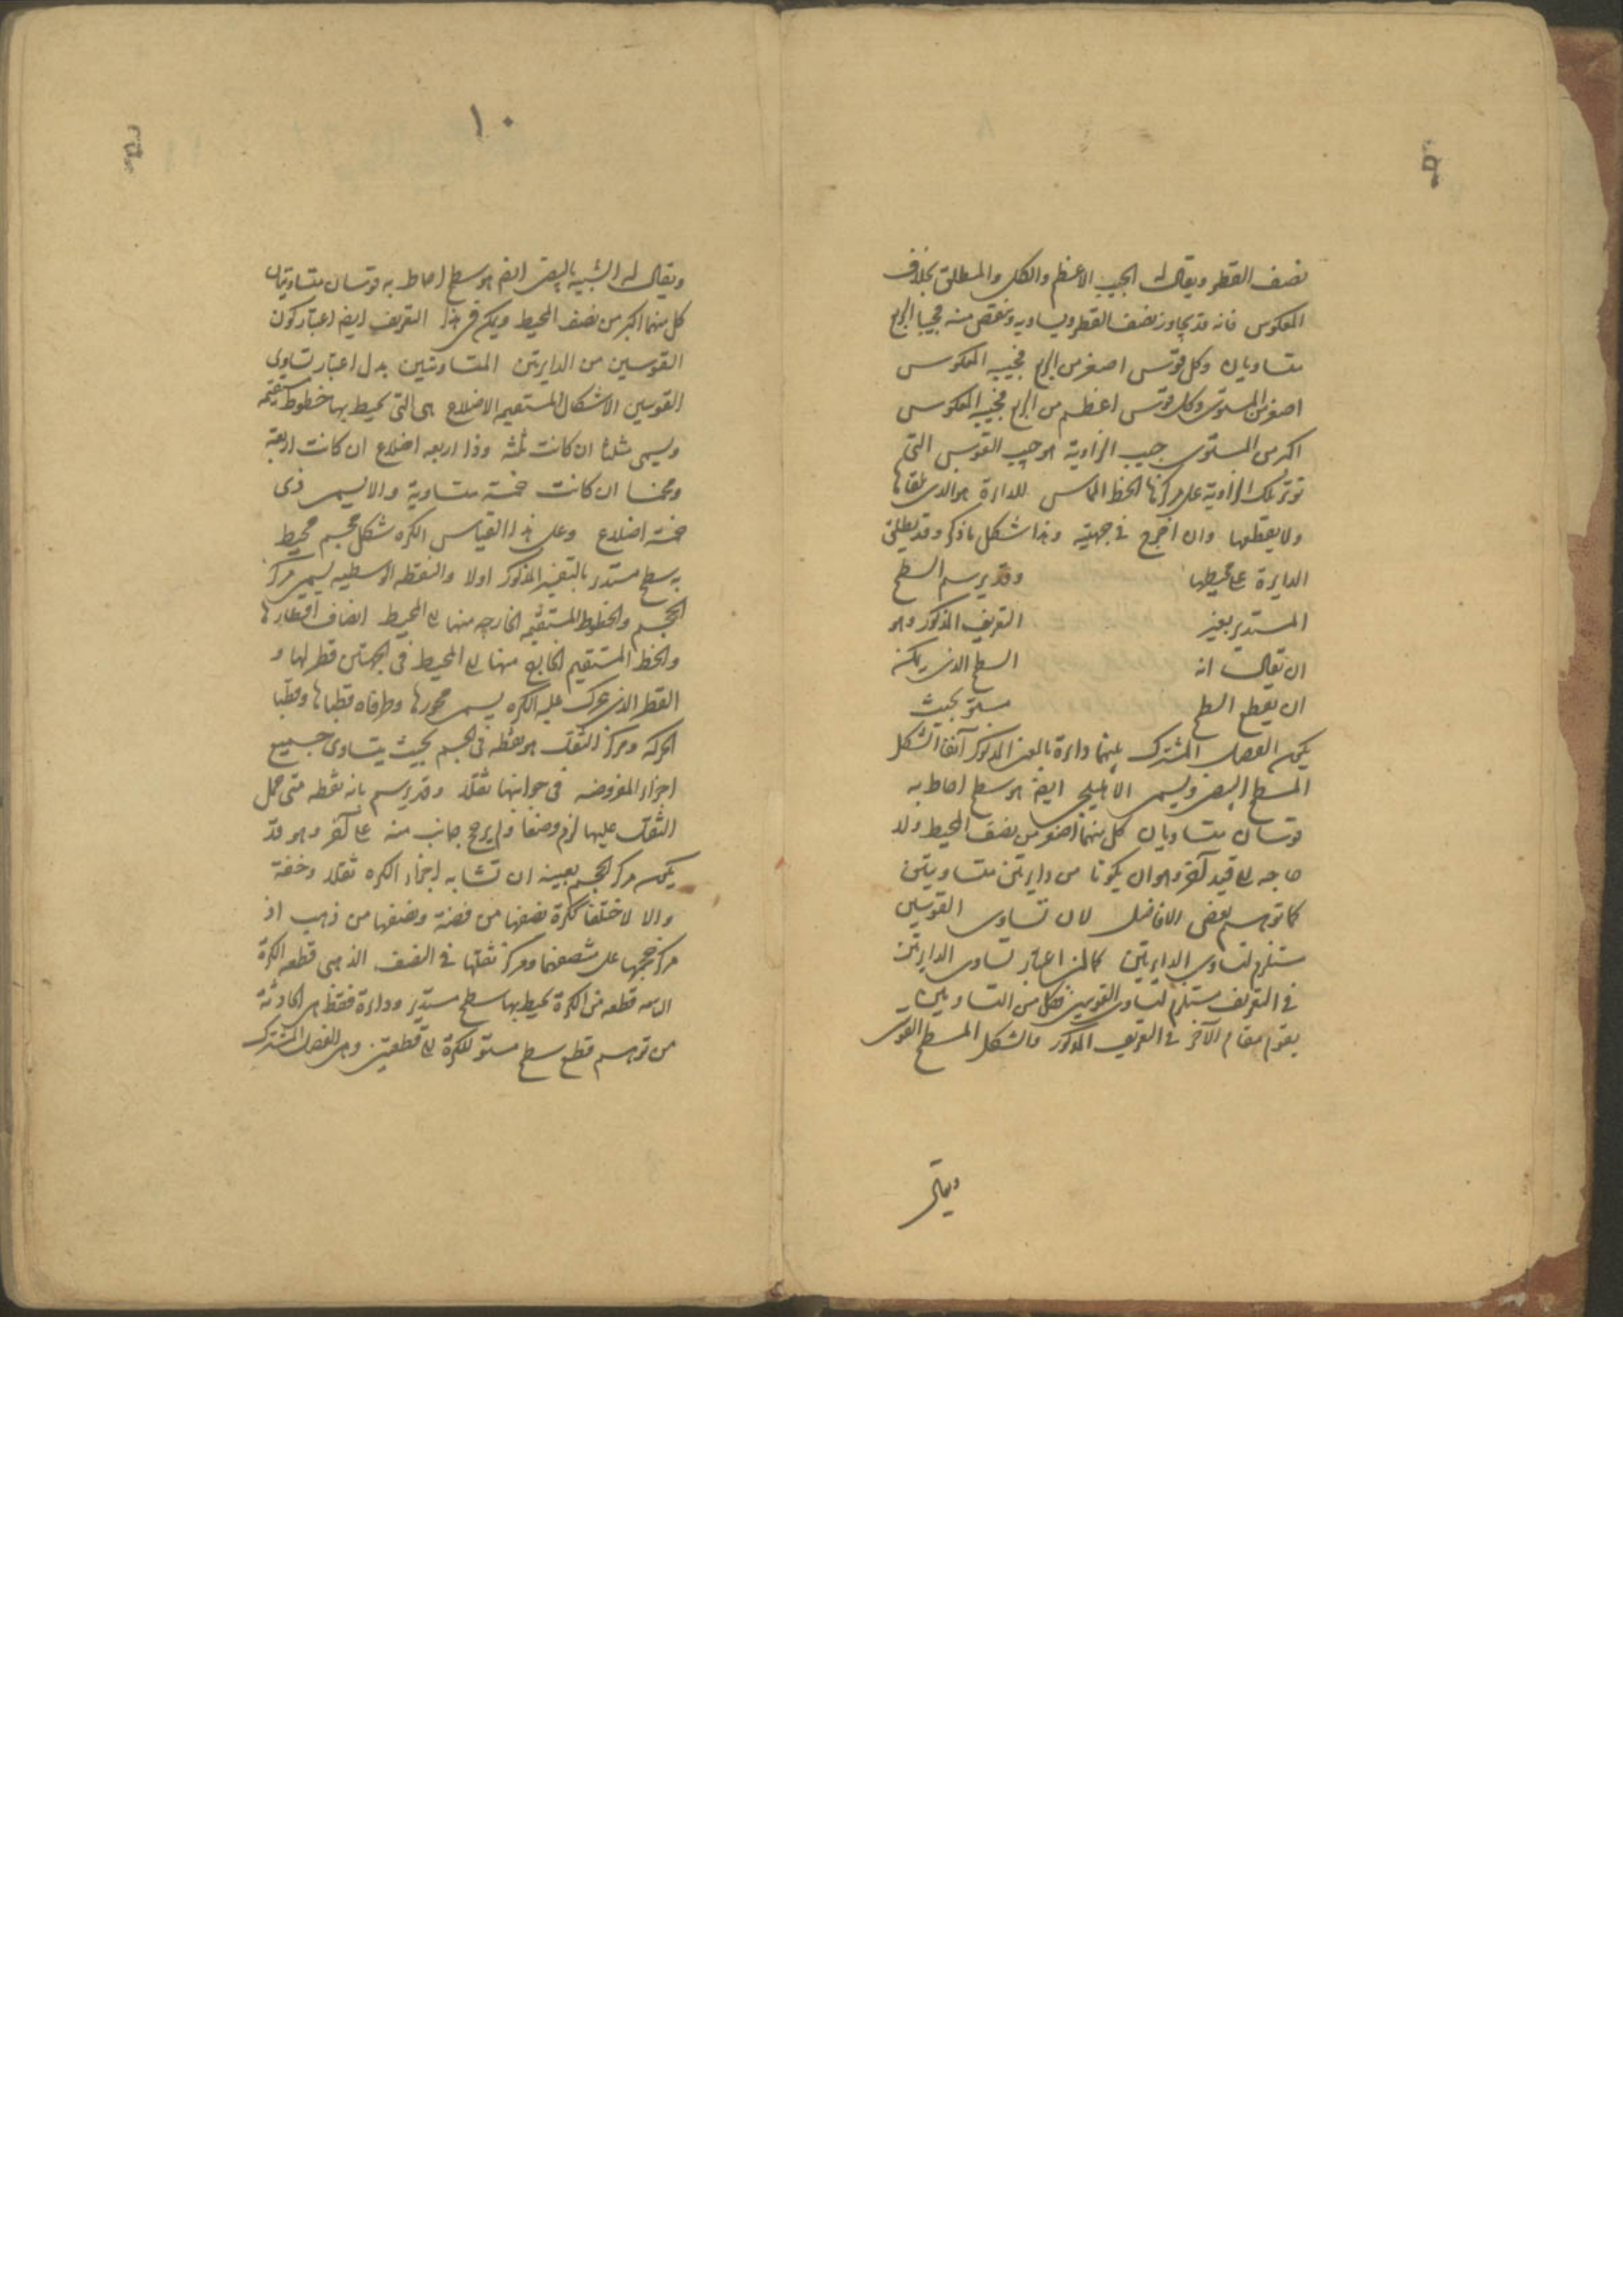 نصف القطر ويقال له الجيب الاعظم والكل والمطلق بخلاف
المعكوس فانه قد يجاوز نصف القطر ويساويه وينقص منه فجيبا الربع
متساويان وكل قوس اصغر من الربع فجيبه المعكوس
اصغر من المستوى وكل قوس اعظم من الربع فجيبه المعكوس
اكبر من المستوى جيب الزاوية هو جيب القوس التي
توتر تلك الزاوية على مركزها الخط المماس للدائرة هو الذى يلقاها
ولا يقطعها وان اخرج في جهتيه وهذا شكل ما ذكر وقد يطلق
الدايرة على محيطها وقد يرسم السطح
المستدير بغير التعريف المذكور وهو
ان يقال انه السطح الذى يمكن
ان يقطع السطح مستو بحيث
يكون الفصل المشترك بينهما دائرة بالمعنى المذكور آنفا الشكل
المسطح البيضى ويسمى الاهليلجى ايضا هو سطح احاط به
قوسان متساويان كل منهما اصغر من نصف المحيط ولا
حاجه الى قيد آخر وهو ان يكونا من دايرتين متساويتين
كما توهم بعض الافاضل لان تساوى القوسين
مستلزم لتساوى الدايرتين كما ان اعتبار تساوى الدايرتين
في التعريف مستلزم لتساوى القوسين فكل من التساويين
يقوم مقام الآخر في التعريف المذكور والشكل المسطح القوى
ويقال
١٠
ويقال له الشبيه بالبيضى ايضا هو سطح احاط به قوسان متساويتان
كل منهما اكبر من نصف المحيط ويكفى في هذا التعريف ايضا اعتبار كون
القوسين من الدايرتين المتساويتين بدل اعتبار تساوى
القوسين الاشكال المستقيمه الاضلاع هى التى يحيط بها خطوط مستقيمه
ويسمى مثلثا ان كانت ثلثه وذا اربعه اضلاع ان كانت اربعة
ومخمسا ان كانت خمسة متساوية والا يسمى ذى
خمسة اضلاع وعلى هذا القياس الكره شكل مجسم محيط
به سطح مستدير بالتفسير المذكور اولا والنقطه الاوسطيه يسمى مركز
الحجم والخطوط المستقيمه الخارجه منها الى المحيط انصاف اقطارها
والخط المستقيم الخارج منها الى المحيط في الجهتين قطر لها و
القطر الذى تتحرك عليه الكره يسمى محورها وطرفاه قطباها وقطبا
الحركه ومركز الثقل هو نقطه في الجسم بحيث يتساوى جميع
اجزاء المفروضه في جوانبها ثقلا وقد يرسم بانه نقطه متى حمل
الثقل عليها لزم وضعا ولم يرجح جانب منه على آخر وهو قد
يكون مركز الحجم بعينه ان تشابه اجزاء الكره ثقلا وخفة
والا لاختلفا ككرة نصفها من فضة ونصفها من ذهب اذ
مركز حجمها على منتصفهما ومركز ثقلها في النصف الذهبى قطعه الكرة
قطعه من الكرة يحيط بها سطح مستدير ودائرة فقط هى الحادثة
من توهم قطع سطح مستو للكرة الى قطعتين وهى الفصل المشترك